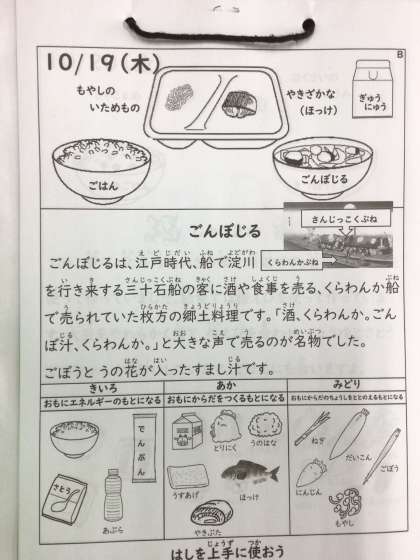 B
10/19(木)
もやしの
いためもの
やきざかな
(ほっけ)
ぎゅう
にゅう
ごはん
ごんぼじる
ごんぼじる
さんじっこくぶね
くらわんかぶね
ごんぼじるは、江戸時代、船で淀川
を行き来する三十石船の客に酒や食事を売る、くらわんか船
で売られていた枚方の郷土料理です。「酒、くらわんか。ごん
ぼ汁、くらわんか。」と大きな声で売るのが名物でした。
ごぼうと うの花が入ったすまし汁です。
きいろ
あか
みどり
おもにエネルギーのもとになる
おもにからだをつくるもとになる
おもにからだのちょうしをととのえるもとになる
でんぷん
さとう
あぶら
とりにく
うのはな
うすあげ
ほっけ
やきぶた
ねぎ
だいこん
ごぼう
にんじん
もやし
はしを上手に使おう